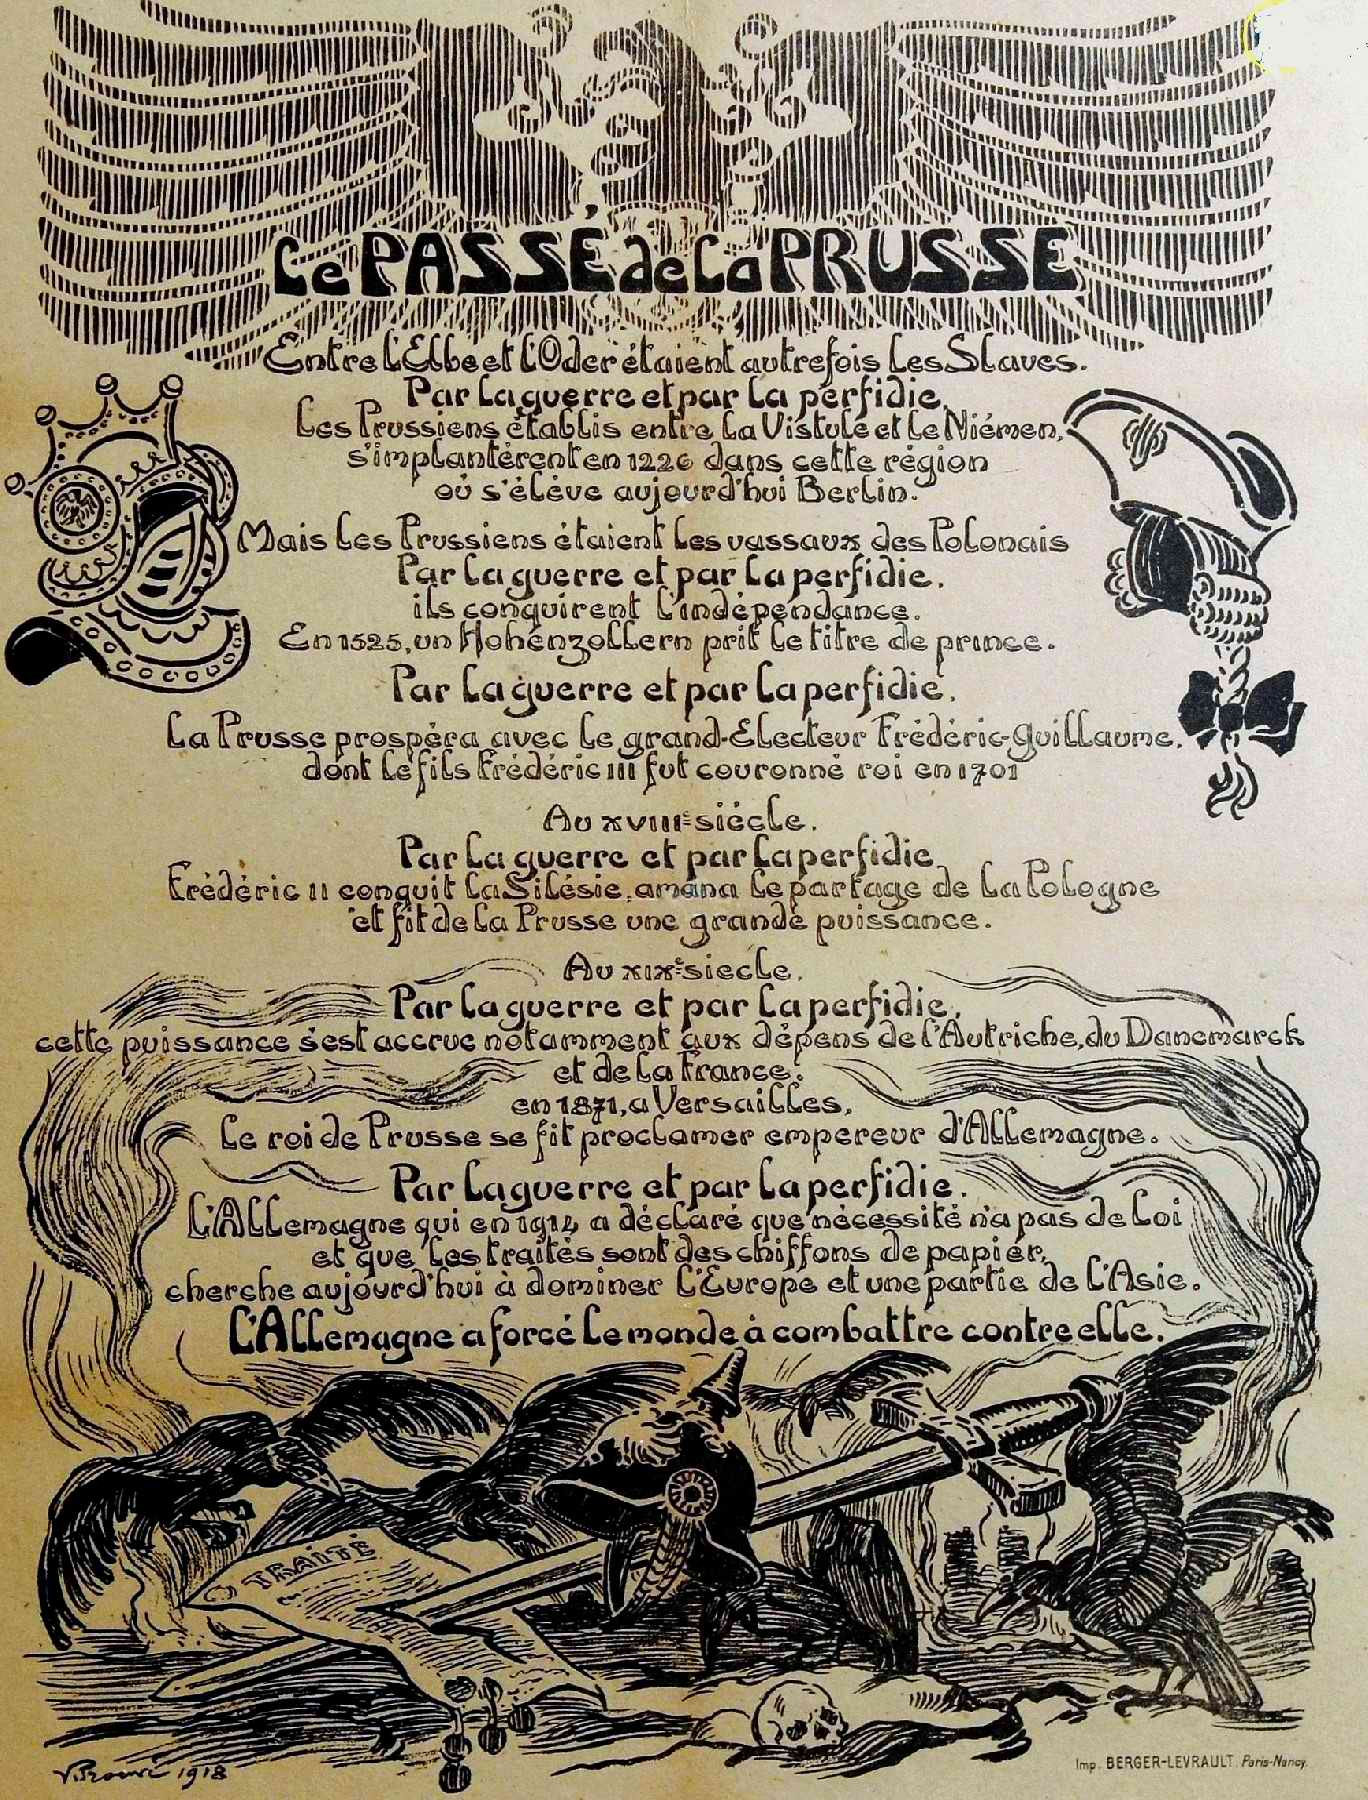 Le PASSÉ de La PRUSSE
Entre l'Elbe et l'Oder étaient autrefois les Slaves.
Par la guerre et par la perfidie,
les Prussiens établis entre la Vistule et le Niémen,
s'implantèrent en 1226 dans cette région
où s'élève aujourd'hui Berlin.
Mais les Prussiens étaient les vassaux des Polonais
Par la guerre et par la perfidie,
ils conquirent l'indépendance.
En 1525, un Hohenzollern prit le titre de prince.
Par la guerre et par la perfidie,
la Prusse prospéra avec le grand-Electeur Frédéric-Guillaume,
dont le fils Frédéric III fut couronné roi en 1701
Au XVIIIe siècle.
Par la guerre et par la perfidie,
Frédéric II conquit la Silésie, amena le partage de la Pologne
et fit de la Prusse une grande puissance.
Au XIXe siècle,
Par la guerre et par la perfidie,
cette puissance s'est accrue notamment aux dépens de l'Autriche, du Danemarck
et de la France.
en 1871, a Versailles,
le roi de Prusse se fit proclamer empereur d'Allemagne.
Par la guerre et par la perfidie,
L'Allemagne qui en 1914 a déclaré que nécessité n'a pas de loi
et que les traités sont des chiffons de papier,
cherche aujourd'hui à dominer l'Europe et une partie de l'Asie.
L'Allemagne a forcé le monde à combattre contre elle.
TRAITÉ
V. Prouvé 1918
Imp. BERGER-LEVRAULT. Paris-Nancy.